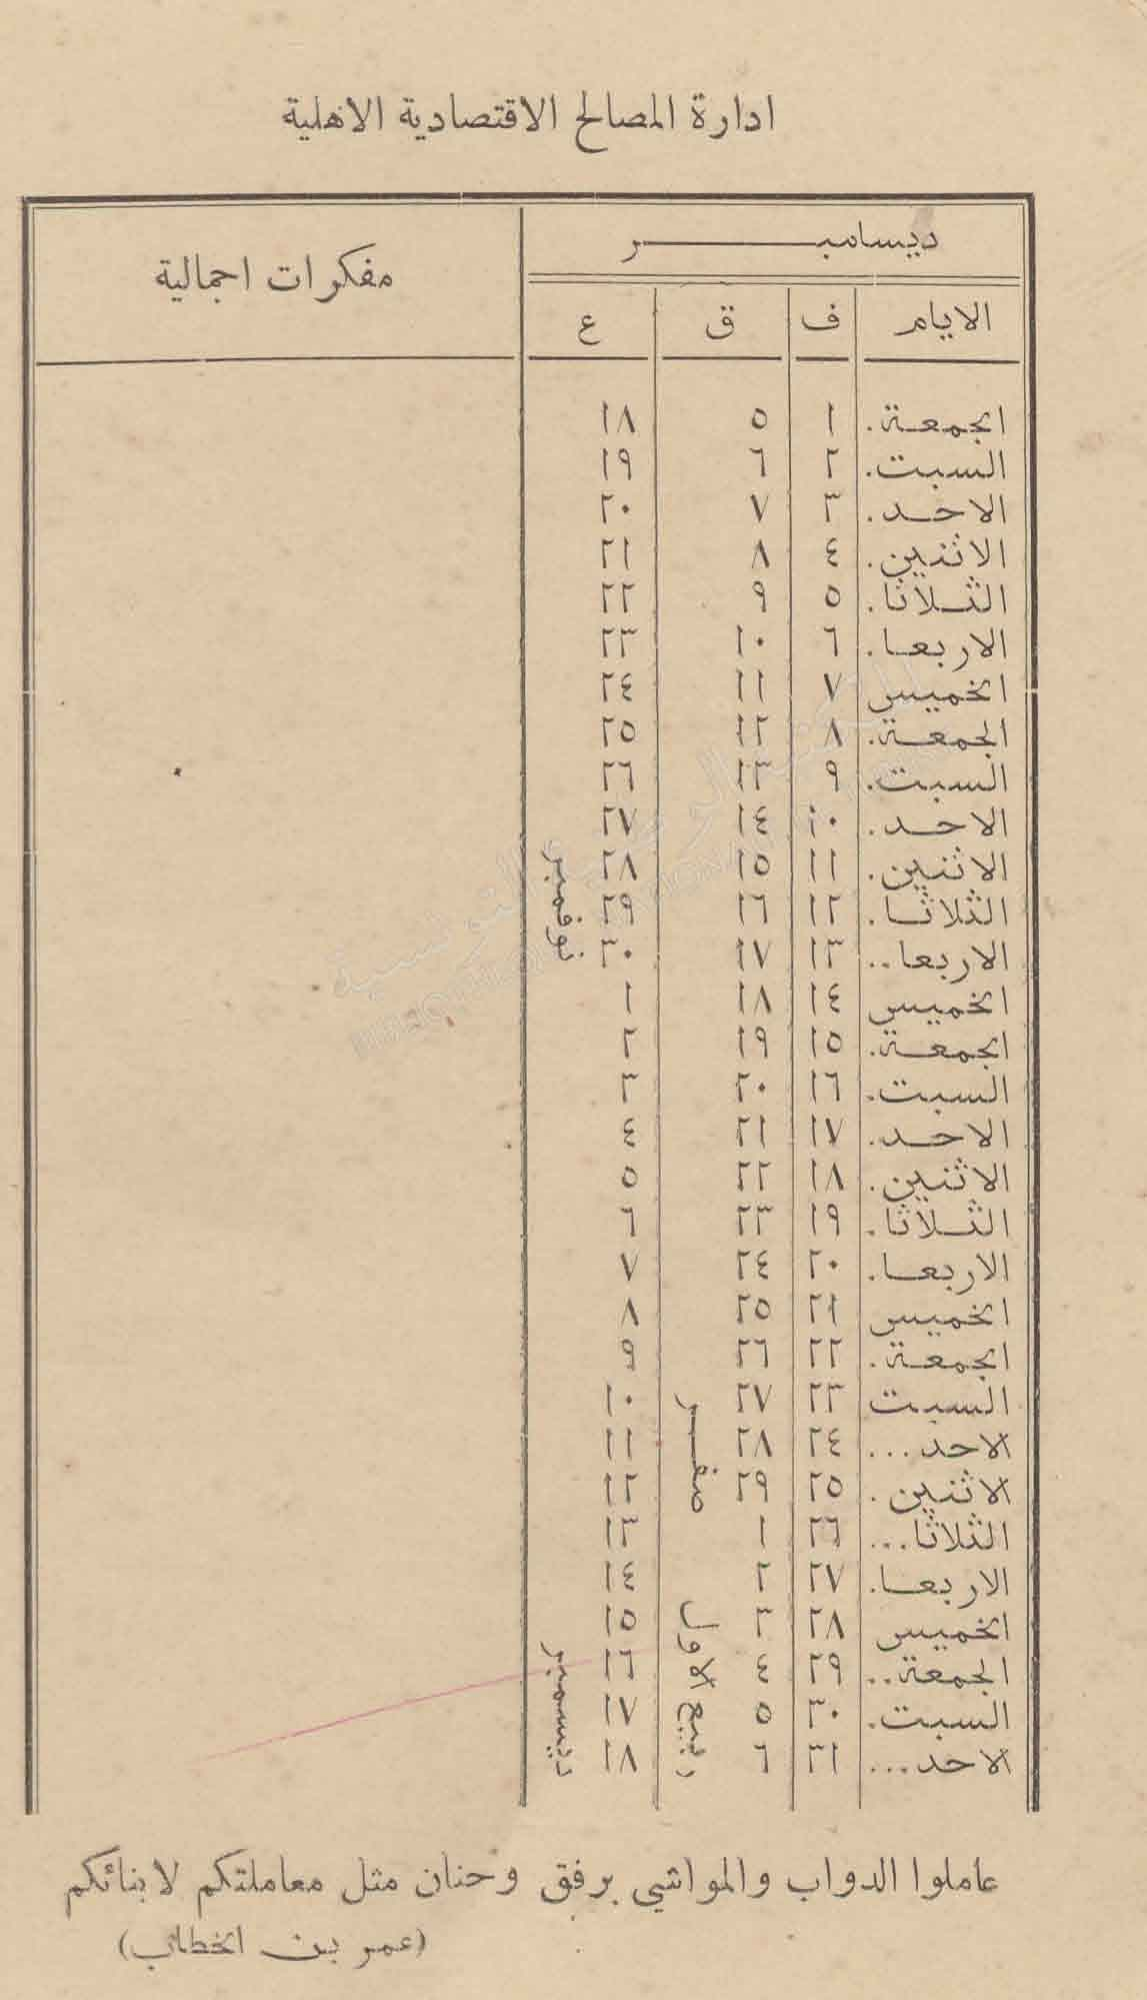 ادارة المصالح الاقتصادية الاهلية
ديسامبر
مفكرات اجمالية
الايام ف ق ع
الجمعة. ١ ٥ ١٨
السبت. ٢ ٦ ١٩
الاحد. ٣ ٧ ٢٠
الاثنين. ٤ ٨ ٢١
الثلاثا. ٥ ٩ ٢٢
الاربعا. ٦ ١٠ ٢٣
الخميس ٧ ١١ ٢٤
الجمعة. ٨ ١٢ ٢٥
السبت. ٩ ١٣ ٢٦
الاحد. ١٠ ١٤ ٢٧
الاثنين. ١١ ١٥ ٢٨
الثلاثا. ١٢ ١٦ ٢٩
الاربعا.. ١٣ ١٧ ٣٠
نوفمبر
الخميس ١٤ ١٨ ١
الجمعة. ١٥ ١٩ ٢
السبت. ١٦ ٢٠ ٣
الاحد. ١٧ ٢١ ٤
الاثنين. ١٨ ٢٢ ٥
الثلاثا. ١٩ ٢٣ ٦
الاربعا. ٢٠ ٢٤ ٧
الخميس ٢١ ٢٥ ٨
الجمعة. ٢٢ ٢٦ ٩
السبت ٢٣ ٢٧ ١٠
الاحد... ٢٤ ٢٨ ١١
الاثنين. ٢٥ ٢٩ ١٢
صفر
الثلاثا... ٢٦ ١ ١٣
الاربعا. ٢٧ ٢ ١٤
الخميس ٢٨ ٣ ١٥
الجمعة.. ٢٩ ٤ ١٦
السبت. ٣٠ ٥ ١٧
الاحد... ٣١ ٦ ١٨
ربيع الاول
ديسمبر
عاملوا الدواب والمواشي برفق وحنان مثل معاملتكم لابنائكم
(عمر بن الخطاب)